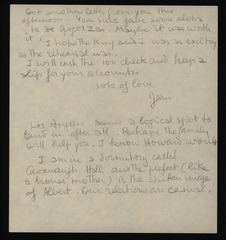 Got another letter from you this
afternoon. You sure gave some slobs
to be good Zen. Maybe it was worth
it.
I hope the King and I was as exciting
as the rehearsal was.
I will cash the 10⁰ check and keep a
slip for your accounts.
lots of love
Jean
Los Angeles seems a logical spot to
land in after all. Perhaps the family
will help you. I know Howard would
I am in a dormitory called
Cavanaugh Hall and the prefect (like
a house mother) is the spitten image
of Albert. Our relations are casual.